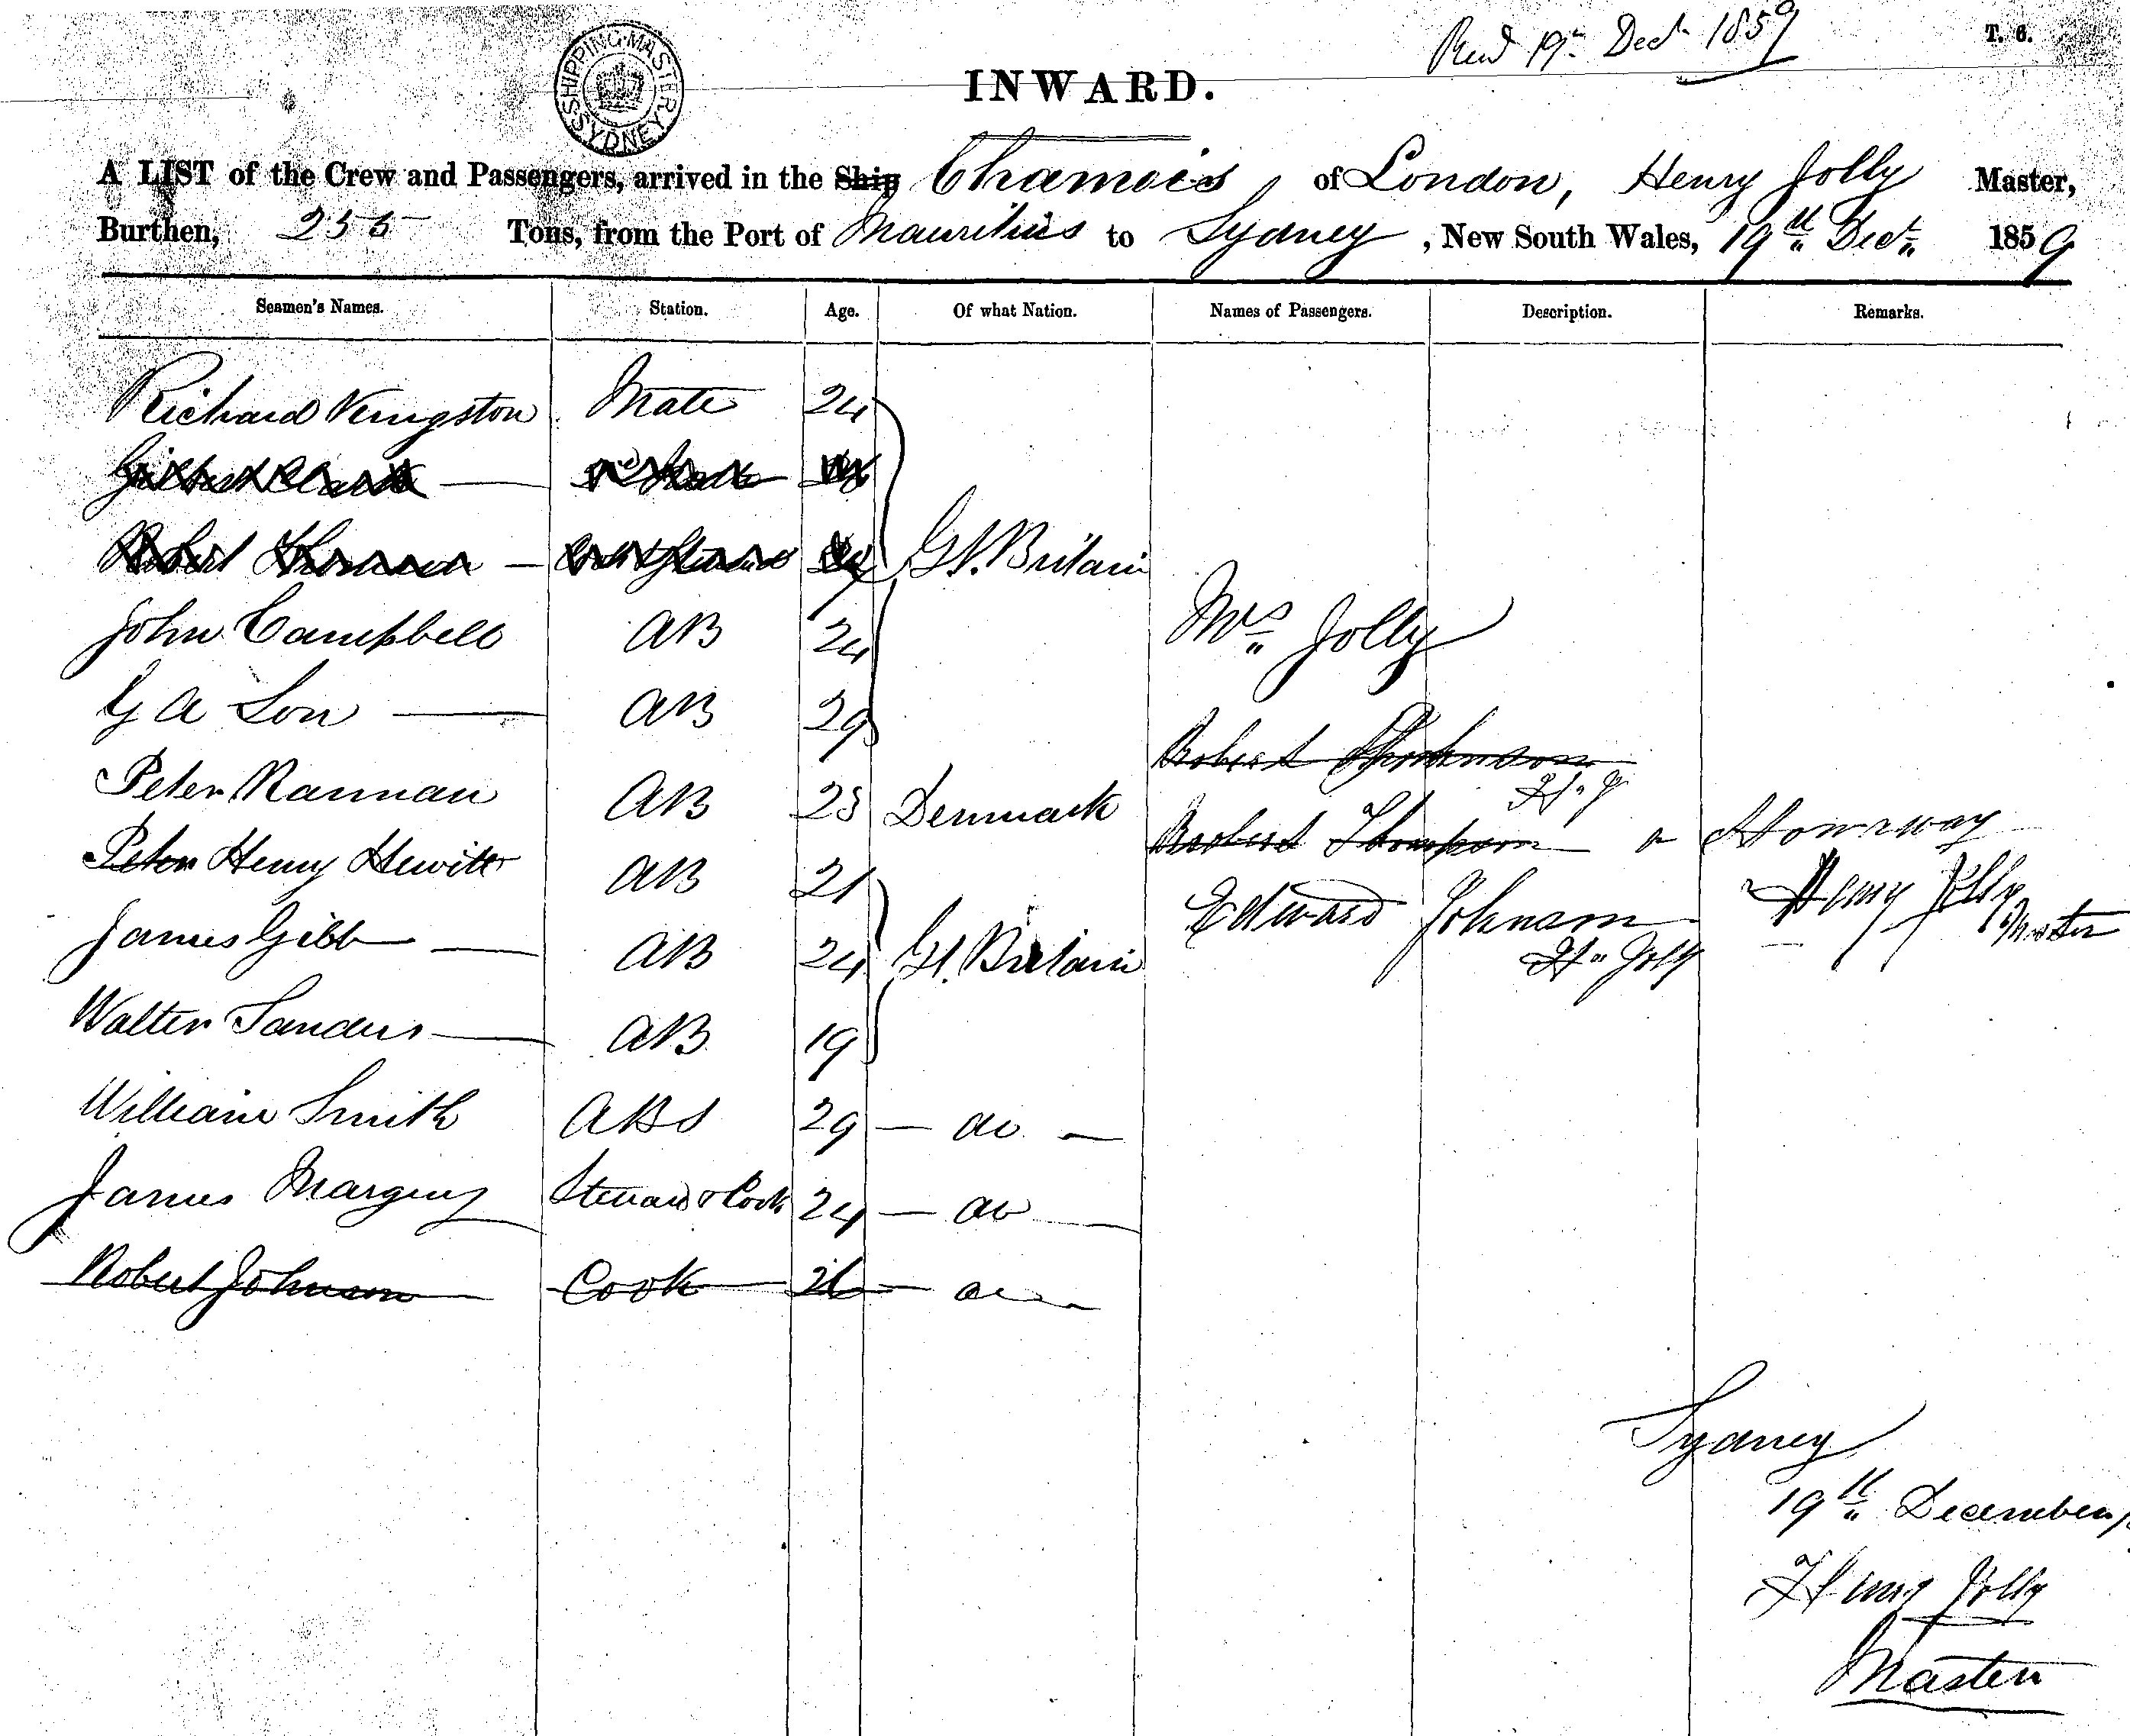 Recd 19th Decr 1859
T. 6.
SHIPPING MASTER SYDNEY
INWARD.
A LIST of the Crew and Passengers, arrived in the Ship Chamois, of London, Henry Jolly Master,
Burthen, Tons, from the Port of Mauritius to Sydney, New South Wales, 19th Decr 1859
Seamen's Names. Station. Age. Of what Nation. Names of Passengers. Description. Remarks.
Richard Kingston Mate 24
Gt. Britain
John Campbell AB 24
Mrs Jolly
G A Son AB 29
Robert
Peter Rannau AB 25 Denmark
H. J.
Robert Thompson a Stowaway
Peter Henry Hewitt AB 21
Henry Jolly
Master
Edward Johnson
James Gibb AB 24 Gt. Britain
H. Jolly
Walter Sanders AB 19
William Smith ABS 29 — do —
James Steward & Cook 24 — do —
Robert Johnson Cook — do —
Sydney
19th December
Henry Jolly
Master